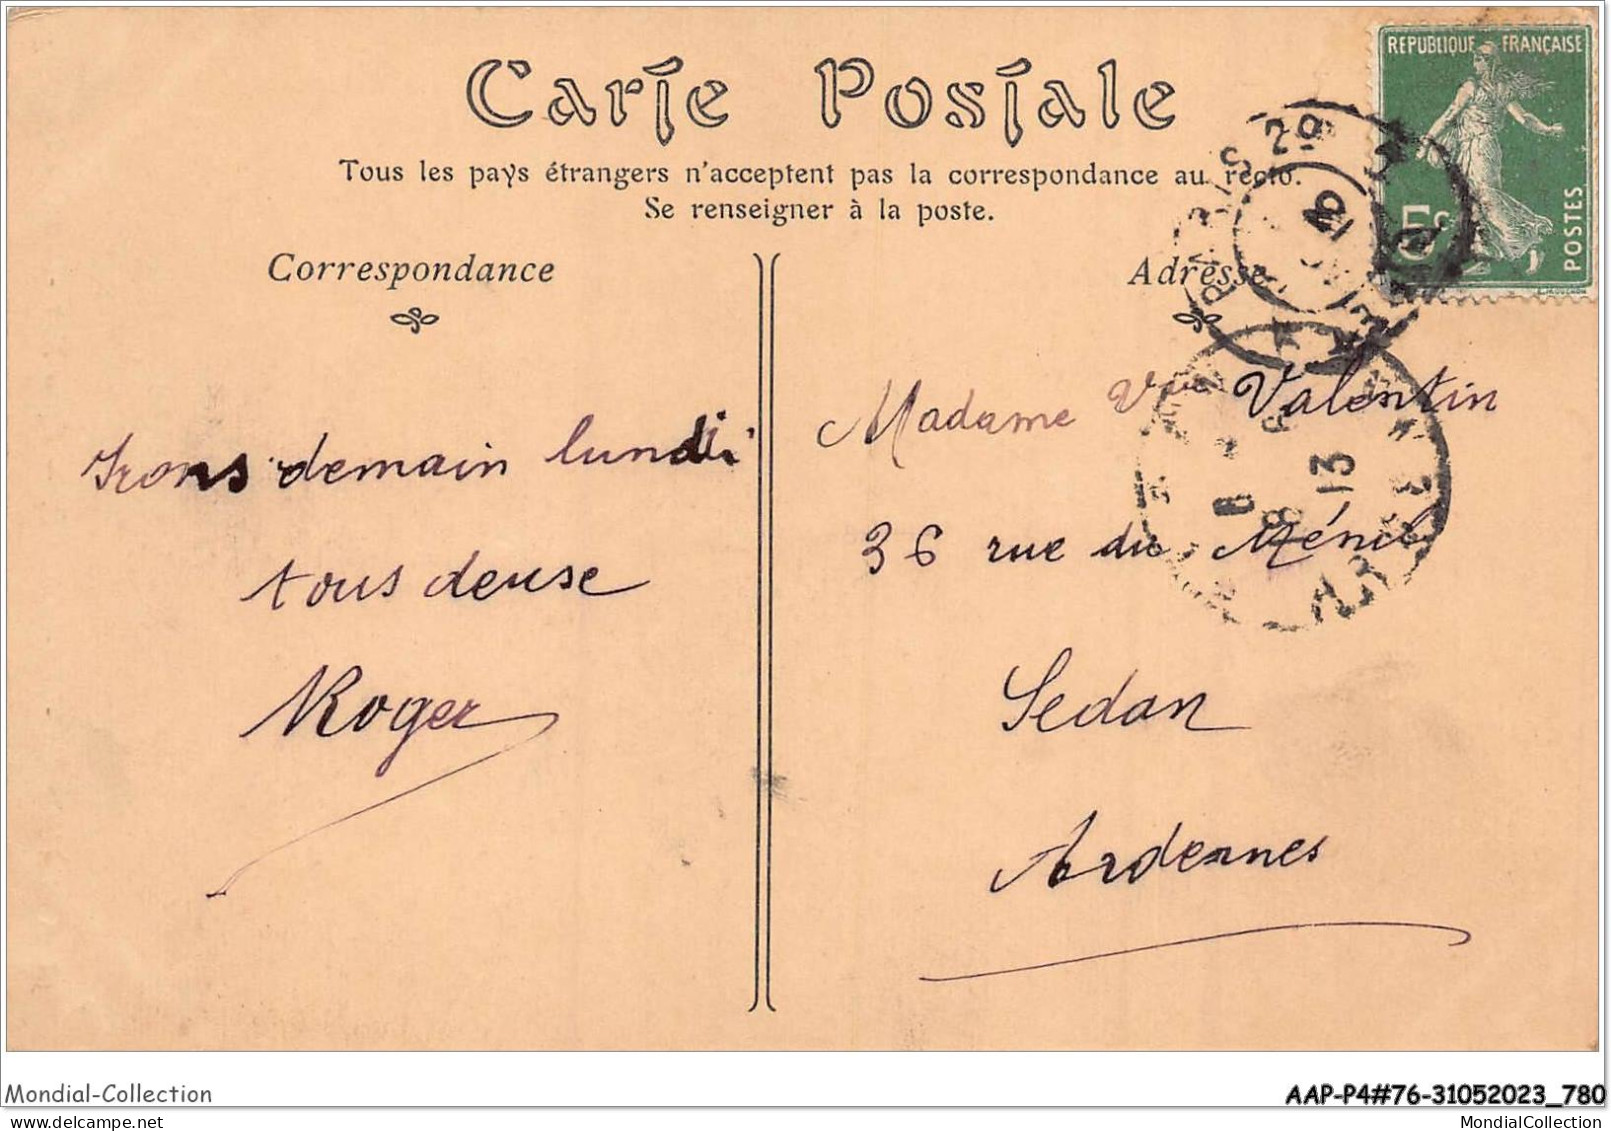 Carte Postale
Tous les pays étrangers n'acceptent pas la correspondance au recto.
Se renseigner à la poste.
Correspondance
Irons demain lundi
tous deuse
Roger
Adresse
Madame Vve Valentin
36 rue du Ménil
Sedan
Ardennes
REPUBLIQUE FRANÇAISE
5c
POSTES
PARIS 29
13
8
13
Mondial-Collection
AAP-P4#76-31052023_780
MondialCollection